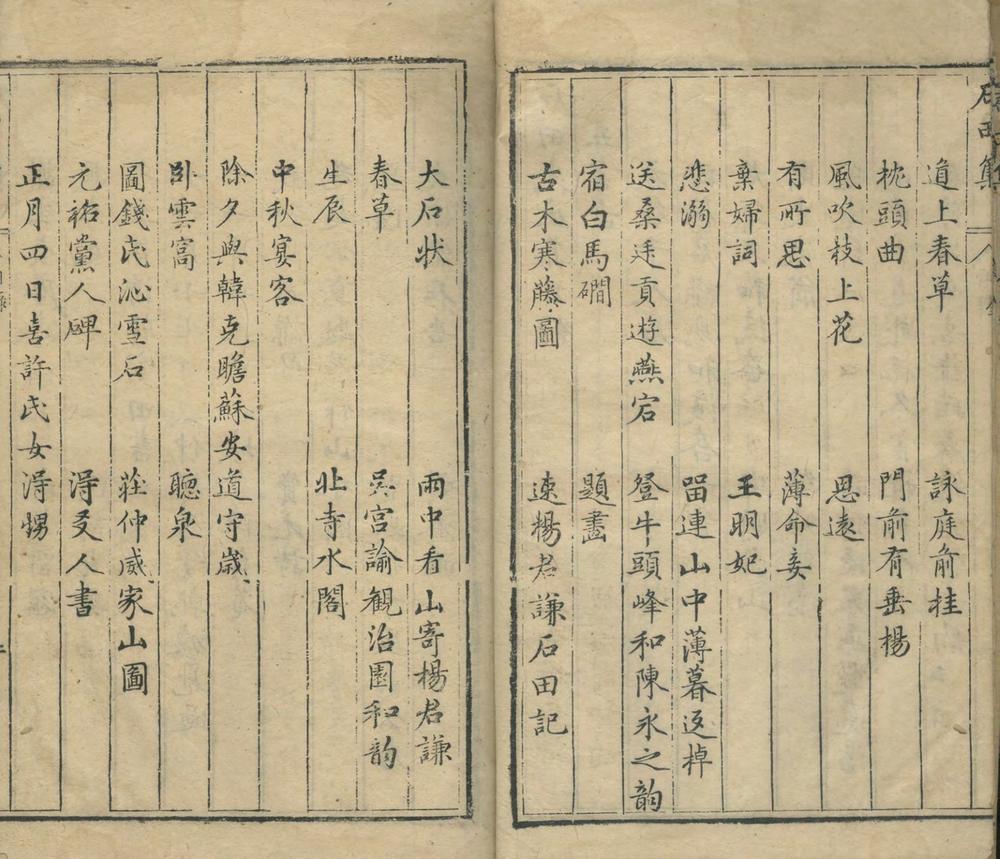 石田集
道上春草　詠庭前桂
枕頭曲　門前有垂楊
風吹枝上花　思遠
有所思　薄命妾
棄婦詞　王明妃
悲溺　留連山中薄暮返棹
送桑廷貢遊燕宕　登牛頭峰和陳永之韵
宿白馬磵　題畵
古木寒藤圖　速楊君謙石田記
大石状　雨中看山寄楊君謙
春草　吳宮諭觀治園和韵
生辰　北寺水閣
中秋宴客
除夕與韓克瞻蘇安道守歲
卧雲窩　聽泉
圖錢氏沁雪石　莊仲威家山圖
元祐黨人碑　淂友人書
正月四日喜許氏女淂甥